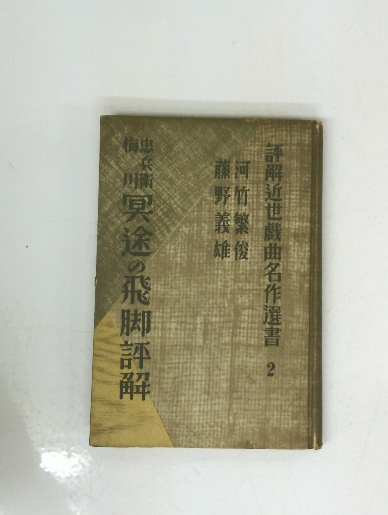 評解近世戯曲名作選書 2
河竹繁俊
藤野義雄
忠兵衛
梅川
冥途の飛脚評解